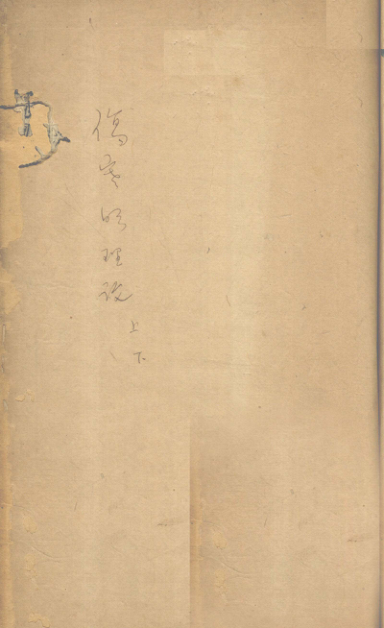 傷寒明理論
上
下